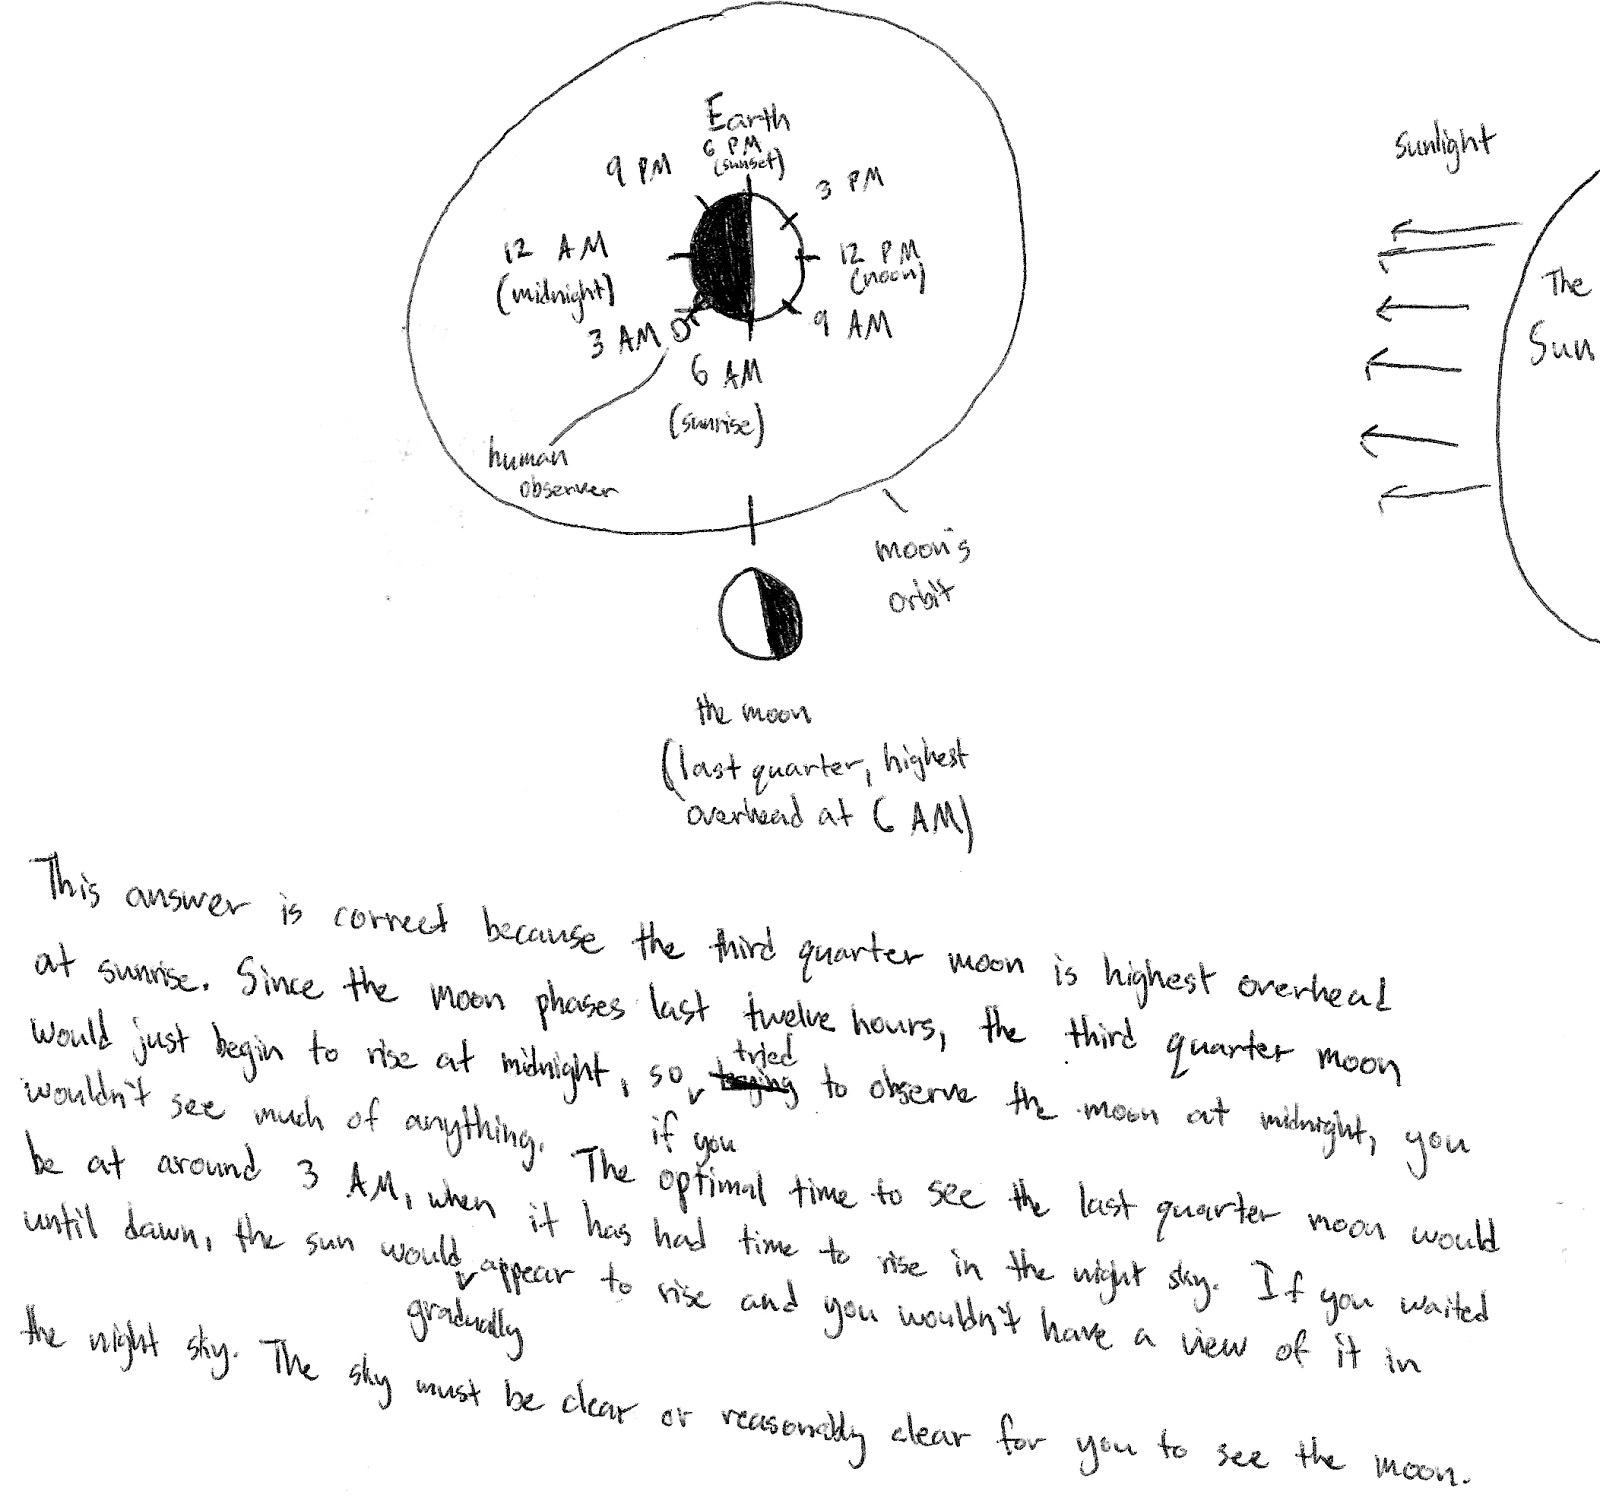 Earth
6 PM
(sunset)
9 PM
3 PM
sunlight
12 AM
(midnight)
12 PM
(noon)
The
Sun
3 AM
9 AM
6 AM
(sunrise)
human
observer
moon's
orbit
the moon
(last quarter, highest
overhead at 6 AM)
This answer is correct because the third quarter moon is highest overhead
at sunrise. Since the moon phases last twelve hours, the third quarter moon
would just begin to rise at midnight, so if you tried to observe the moon at midnight, you
wouldn't see much of anything. The optimal time to see the last quarter moon would
be at around 3 AM, when it has had time to rise in the night sky. If you waited
until dawn, the sun would gradually appear to rise and you wouldn't have a view of it in
the night sky. The sky must be clear or reasonably clear for you to see the moon.